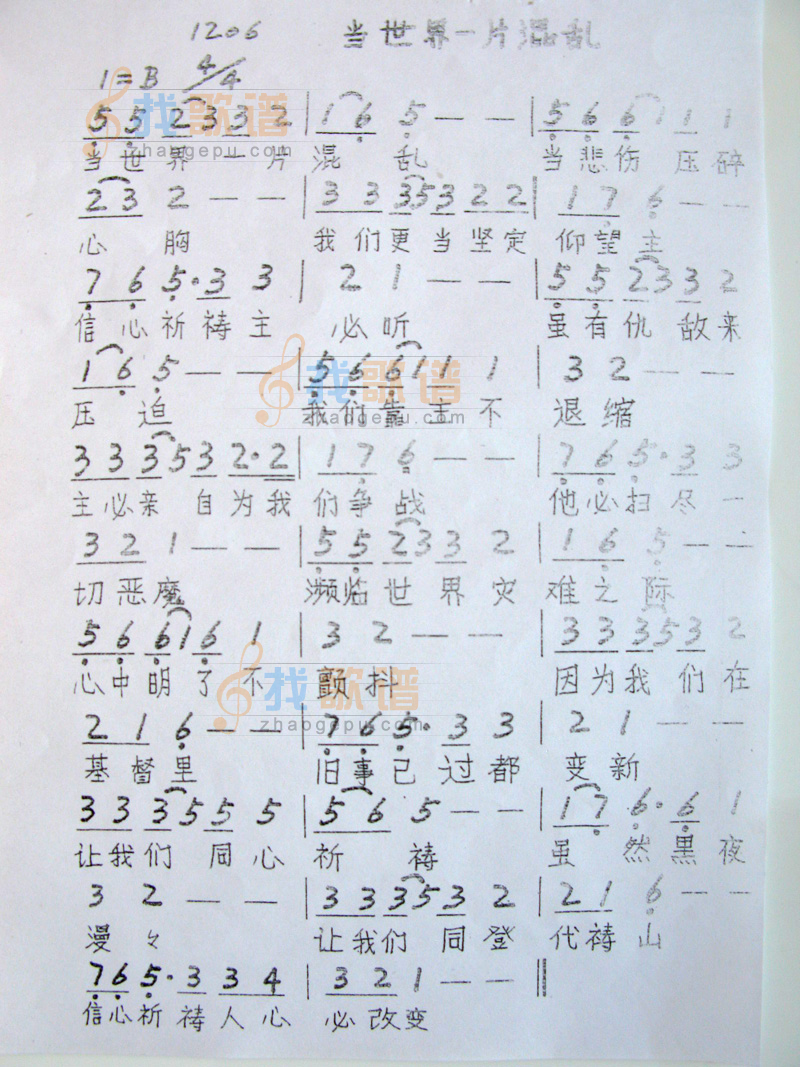 1206 当世界一片混乱
1=B 4/4
5 5 2 3 3 2 | 1 6 5 — — | 5 6 6 1 1 1
当世界一片 混乱 当悲伤压碎
2 3 2 — — | 3 3 3 5 3 2 2 | 1 7 6 — —
心胸 我们更当坚定 仰望主
7 6 5· 3 3 | 2 1 — — | 5 5 2 3 3 2
信心祈祷主 必听 虽有仇敌来
1 6 5 — — | 5 6 6 1 1 1 | 3 2 — —
压迫 我们靠主不 退缩
3 3 3 5 3 2·2 | 1 7 6 — — | 7 6 5· 3 3
主必亲自为我 们争战 他必扫尽一
3 2 1 — — | 5 5 2 3 3 2 | 1 6 5 — —
切恶魔 濒临世界灾 难之际
5 6 6 1 6 1 | 3 2 — — | 3 3 3 5 3 2
心中明了不 颤抖 因为我们在
2 1 6 — — | 7 6 5· 3 3 | 2 1 — —
基督里 旧事已过都 变新
3 3 3 5 5 5 | 5 6 5 — — | 1 7 6· 6 1
让我们同心 祈祷 虽然黑夜
3 2 — — | 3 3 3 5 3 2 | 2 1 6 — —
漫々 让我们同登 代祷山
7 6 5· 3 3 4 | 3 2 1 — — ‖
信心祈祷人心 必改变
找歌谱
zhaogepu.com
找歌谱
zhaogepu.com
找歌谱
zhaogepu.com